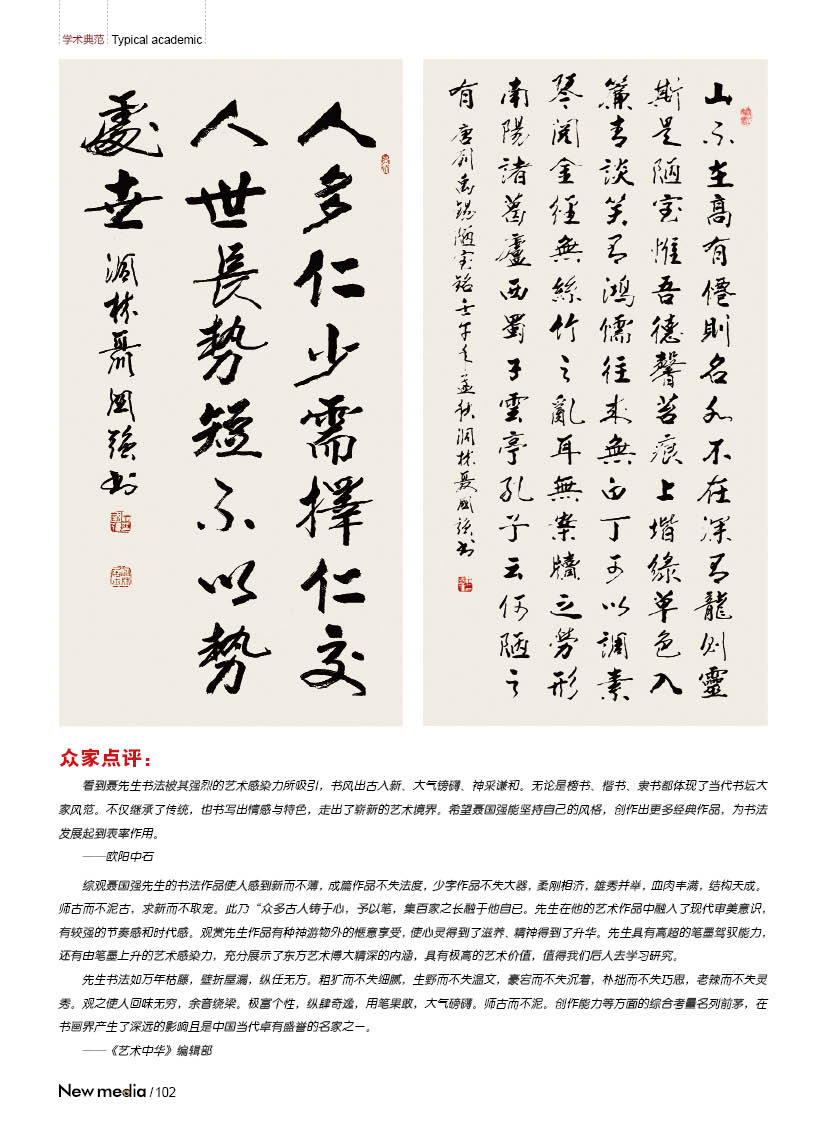 学术典范 Typical academic
人多仁少需擇仁交
人世長勢短不以勢
處世 洞林聶國强书
山不在高有僊則名水不在深有龍則靈
斯是陋室惟吾德馨苔痕上堦緑草色入
簾青談笑有鴻儒往來無白丁可以調素
琴閲金經無絲竹之亂耳無案牘之勞形
南陽諸葛廬西蜀子雲亭孔子云何陋之
有 唐刘禹錫陋室銘壬午年孟秋洞林聂國强书
众家点评：
看到聂先生书法被其强烈的艺术感染力所吸引，书风出古入新、大气磅礴、神采谦和。无论是榜书、楷书、隶书都体现了当代书坛大
家风范。不仅继承了传统，也书写出情感与特色，走出了崭新的艺术境界。希望聂国强能坚持自己的风格，创作出更多经典作品，为书法
发展起到表率作用。
——欧阳中石
综观聂国强先生的书法作品使人感到新而不薄，成篇作品不失法度，少字作品不失大器，柔刚相济，雄秀并举，血肉丰满，结构天成。
师古而不泥古，求新而不取宠。此乃“众多古人铸于心，予以笔，集百家之长融于他自己。先生在他的艺术作品中融入了现代审美意识，
有较强的节奏感和时代感。观赏先生作品有种神游物外的惬意享受，使心灵得到了滋养、精神得到了升华。先生具有高超的笔墨驾驭能力，
还有由笔墨上升的艺术感染力，充分展示了东方艺术博大精深的内涵，具有极高的艺术价值，值得我们后人去学习研究。
先生书法如万年枯藤，壁折屋漏，纵任无方。粗犷而不失细腻，生野而不失温文，豪宕而不失沉着，朴拙而不失巧思，老辣而不失灵
秀。观之使人回味无穷，余音绕梁。极富个性，纵肆奇逸，用笔果敢，大气磅礴。师古而不泥。创作能力等方面的综合考量名列前茅，在
书画界产生了深远的影响且是中国当代卓有盛誉的名家之一。
——《艺术中华》编辑部
New media / 102